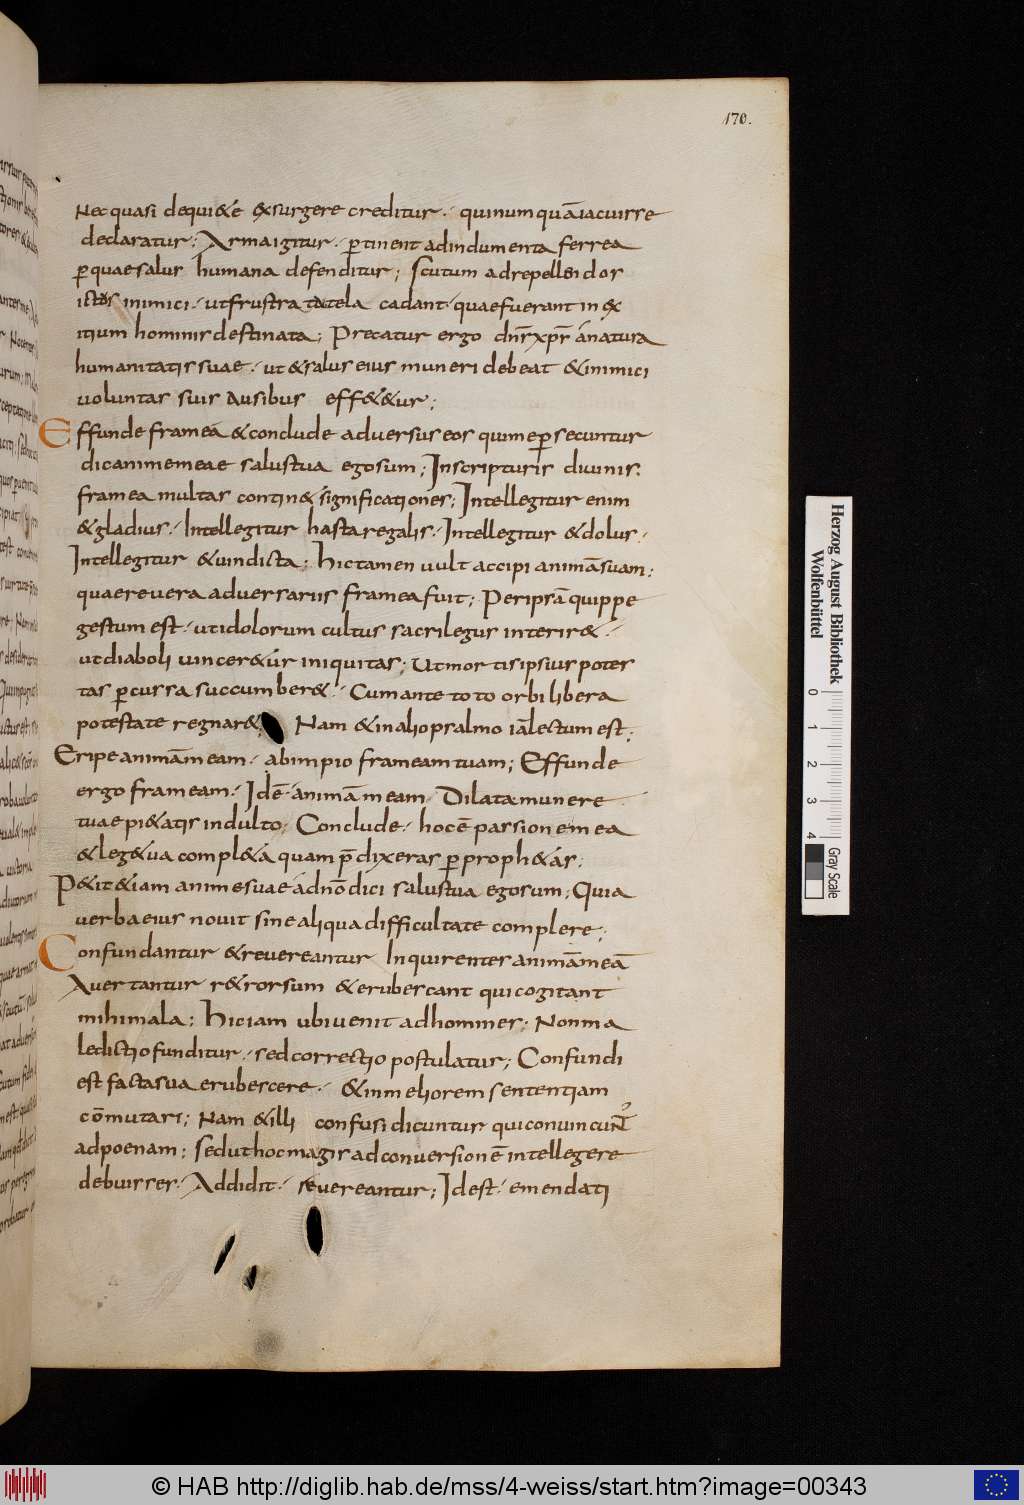 170.
Nec quasi dequi&e exsurgere creditur· quinumquāiacuisse
declaratur; Armaigitur· ꝑtinent adindumenta ferrea
ꝑquaesalus humana defenditur; scutum adrepellendos
ictos inimici· utfrustra tatela cadant· quaefuerant inex
itium hominis destinata; Precatur ergo dn̄sxp̄s ánatura
humanitatis suae· ut &salus eius muneri debeat &inimici
uoluntas suis Ausibus eff&&ur;
Effunde frameá &conclude aduersus eos quimeꝑsecuntur
dicanimemeae salustua egosum; Inscripturis diuinis·
framea multas contin& significationes; Intellegitur enim
&gladius· Intellegitur hastaregalis· Intellegitur &dolus·
Intellegitur &uindicta; hictamen uult accipi animāsuam;
quaereuera aduersariis frameafuit; Peripsā quippe
gestum est· utidolorum cultus sacrilegus interir&·
utdiaboli uincer&ur iniquitas; Utmortisipsius potes
tas ꝑcussa succumber&· Cumante toto orbi libera
potestate regnar&; Nam &inaliopsalmo iālectum est;
Eripe animāmeam· abimpio frameamtuam; Effunde
ergo frameam· Idē· animām eam· Dilata munere
tuae pi&atis indulto; Conclude· hocē passionemea
&leg&ua compl&á quam p̄dixeras ꝑproph&ás;
P&it&iam animesuae ádnōdici salustua egosum; Quia
uerbaeius nouit sinealiqua difficultate complere;
Confundantur &reuereantur Inquirentes animāmeā
Auertantur r&rorsum &erubescant quicogitant
mihimala; hiciam ubiuenit adhomines; Nonma
ledictio funditur· sed correctio postulatur; Confundi
est factasua erubescere· &inmeliorem sententiam
cōmutari; Nam &illi confusi dicuntur quiconuincunt̄
adpoenam; seduthocmagis adconuersionē intellegere
debuisses· Addidit· reuereantur; Idest· emendati
Herzog August Bibliothek
Wolfenbüttel
0 1 2 3 4
Gray Scale
© HAB http://diglib.hab.de/mss/4-weiss/start.htm?image=00343